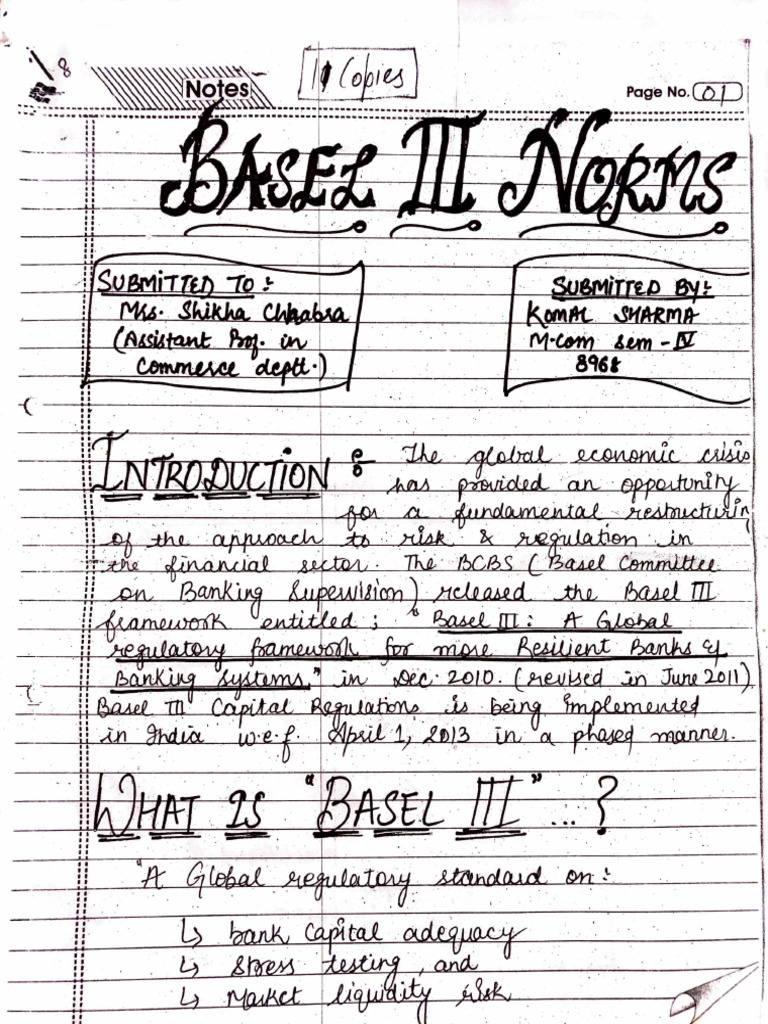 8
Notes
11 Copies
Page No. 01
BASEL III NORMS
SUBMITTED TO :-
Mrs. Shikha Chhabra
(Assistant Prof. in
Commerce deptt.)
SUBMITTED BY:-
KOMAL SHARMA
M.com sem - IV
8968
INTRODUCTION :- The global economic crisis
has provided an opportunity
for a fundamental restructurin
of the approach to risk & regulation in
the financial sector. The BCBS (Basel Committee
on Banking Supervision) released the Basel III
framework entitled ; "Basel III : A Global
regulatory framework for more Resilient Banks &
Banking Systems" in Dec. 2010. (revised in June 2011)
Basel III Capital Regulations is being implemented
in India w.e.f. April 1, 2013 in a phased manner.
WHAT IS "BASEL III" ... ?
"A Global regulatory standard on :-
↳ bank capital adequacy
↳ stress testing, and
↳ Market liquidity risk